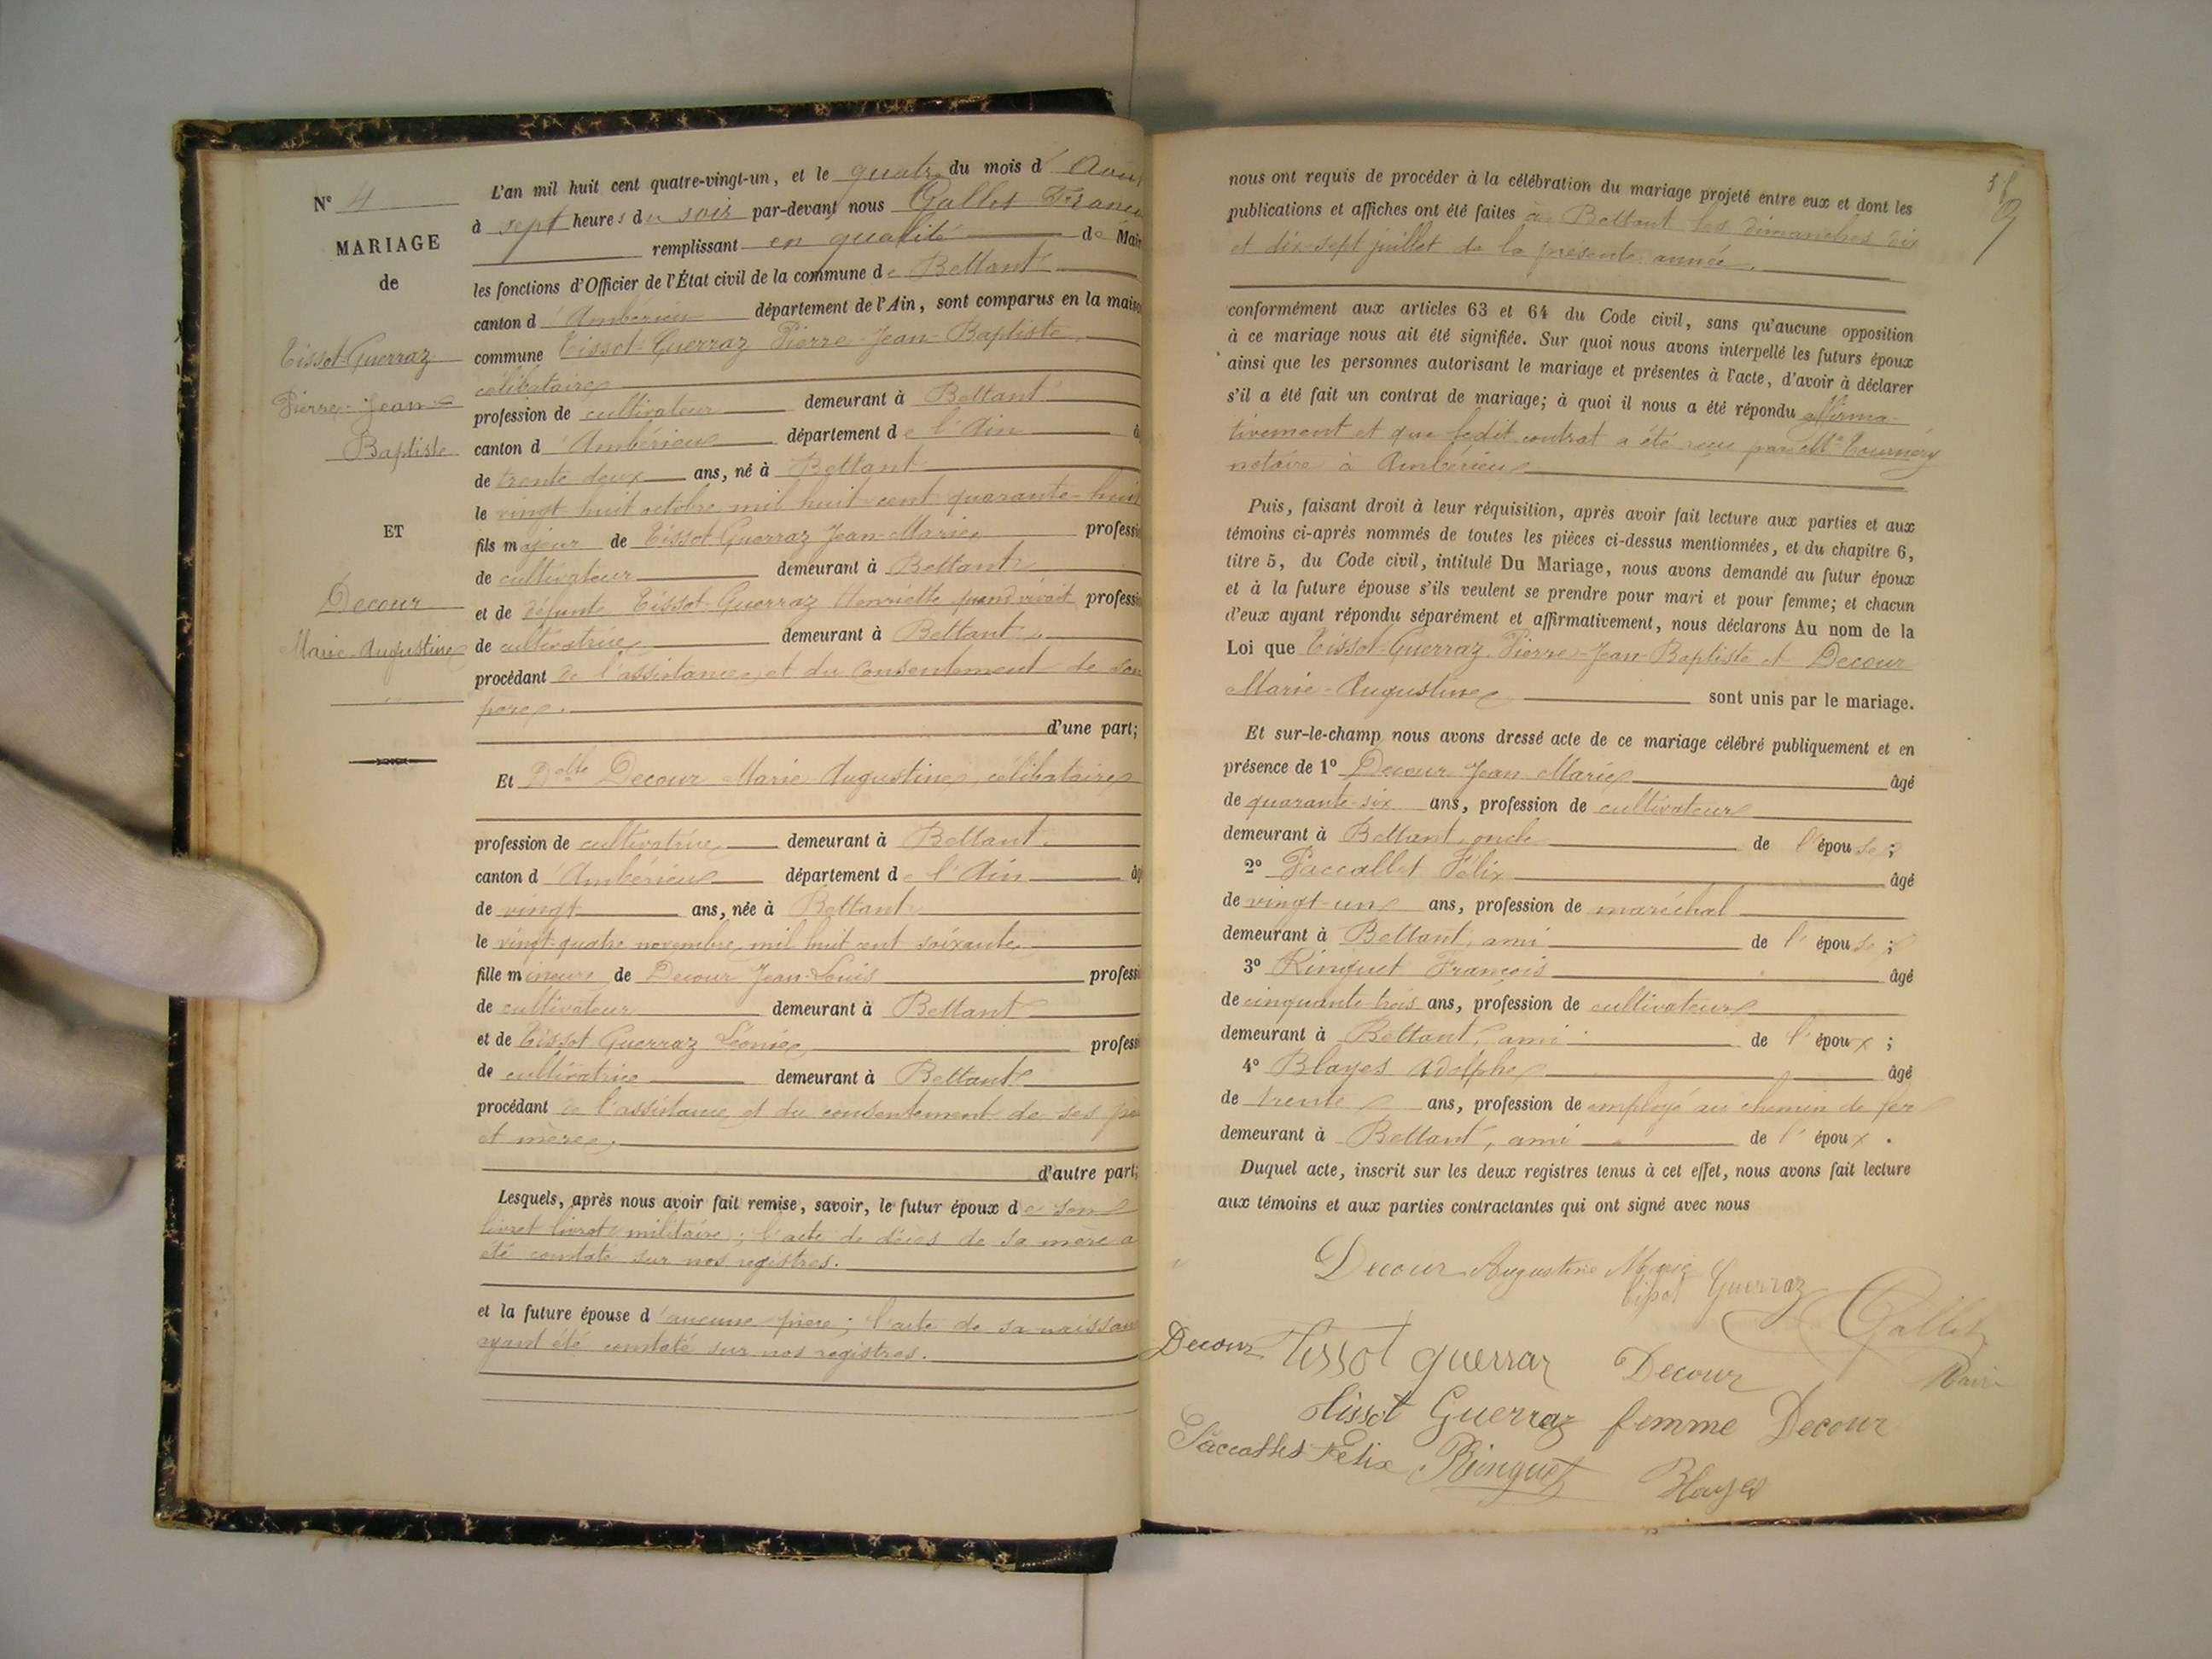 N° 4
MARIAGE
de
Tissot-Guerraz
Pierre-Jean-
Baptiste
ET
Decour
Marie-Augustine
L'an mil huit cent quatre-vingt-un, et le quatre du mois d'Aout
à sept heures du soir par-devant nous Gallet Franço
remplissant en qualité de Mair
les fonctions d'Officier de l'État civil de la commune de Bettant
canton d'Ambérieu département de l'Ain, sont comparus en la maiso
commune Tissot-Guerraz Pierre-Jean-Baptiste,
célibataire
profession de cultivateur demeurant à Bettant
canton d'Ambérieu département de l'Ain â
de trente deux ans, né à Bettant
le vingt huit octobre mil huit cent quarante-huit
fils majeur de Tissot-Guerraz Jean-Marie professi
de cultivateur demeurant à Bettant
et de défunte Tissot-Guerraz Henriette quand vivait professi
de cultivatrice demeurant à Bettant
procédant de l'assistance et du consentement de son
père.
d'une part;
Et Dlle Decour Marie Augustine, célibataire
profession de cultivatrice demeurant à Bettant
canton d'Ambérieu département de l'Ain âg
de vingt ans, née à Bettant
le vingt-quatre novembre mil huit cent soixante
fille mineure de Decour Jean-Louis professi
de cultivateur demeurant à Bettant
et de Tissot Guerraz Léonie professi
de cultivatrice demeurant à Bettant
procédant de l'assistance et du consentement de ses pèr
et mère.
d'autre part;
Lesquels, après nous avoir fait remise, savoir, le futur époux de son
livret livret militaire; l'acte de décès de sa mère a
été constaté sur nos registres.
et la future épouse d'aucune pièce; l'acte de sa naissan
ayant été constaté sur nos registres.
9
nous ont requis de procéder à la célébration du mariage projeté entre eux et dont les
publications et affiches ont été faites à Bettant les dimanches dix
et dix-sept juillet de la présente année.
conformément aux articles 63 et 64 du Code civil, sans qu'aucune opposition
à ce mariage nous ait été signifiée. Sur quoi nous avons interpellé les futurs époux
ainsi que les personnes autorisant le mariage et présentes à l'acte, d'avoir à déclarer
s'il a été fait un contrat de mariage; à quoi il nous a été répondu affirma-
tivement et que ledit contrat a été reçu par Me Tournery
notaire à Ambérieu
Puis, faisant droit à leur réquisition, après avoir fait lecture aux parties et aux
témoins ci-après nommés de toutes les pièces ci-dessus mentionnées, et du chapitre 6,
titre 5, du Code civil, intitulé Du Mariage, nous avons demandé au futur époux
et à la future épouse s'ils veulent se prendre pour mari et pour femme; et chacun
d'eux ayant répondu séparément et affirmativement, nous déclarons Au nom de la
Loi que Tissot-Guerraz Pierre-Jean-Baptiste et Decour
Marie-Augustine sont unis par le mariage.
Et sur-le-champ nous avons dressé acte de ce mariage célébré publiquement et en
présence de 1° Decour Jean Marie âgé
de quarante-six ans, profession de cultivateur
demeurant à Bettant, oncle de l'épouse;
2° Paccallet Félix âgé
de vingt-un ans, profession de maréchal
demeurant à Bettant, ami de l'épouse;
3° Ringuet François âgé
de cinquante trois ans, profession de cultivateur
demeurant à Bettant, ami de l'époux;
4° Blayes Adolphe âgé
de trente ans, profession de employé au chemin de fer
demeurant à Bettant, ami de l'époux.
Duquel acte, inscrit sur les deux registres tenus à cet effet, nous avons fait lecture
aux témoins et aux parties contractantes qui ont signé avec nous
Decour Augustine Marie
Tissot Guerraz
Gallet
Decour Tissot guerraz Decour Maire
tissot Guerraz femme Decour
Paccallet Félix Ringuet Blayes